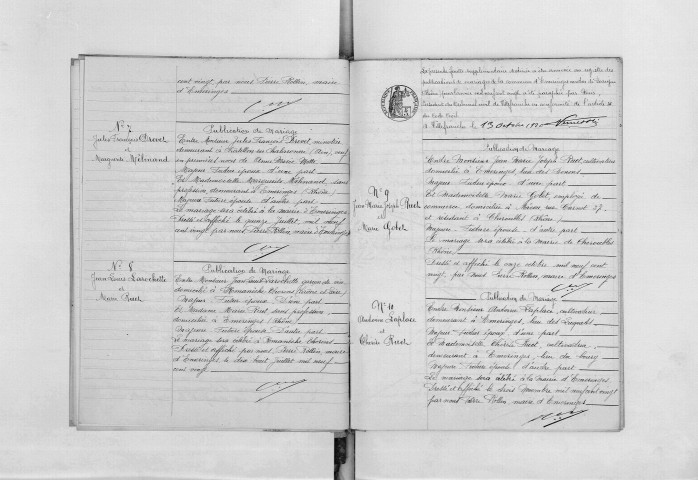 cent vingt, par nous Pierre Rollin, maire
d'Emeringes
N° 7
Jules François Drevet
et
Marguerite Mélinand
Publication de Mariage
Entre Monsieur Jules François Drevet, ministre
demeurant à Châtillon sur Chalaronne (Ain), veuf
en premières noces de Anne Marie
Majeur Futur époux d'une part
Et Mademoiselle Marguerite Mélinand, sans
profession, demeurant à Emeringes (Rhône)
Majeure Future épouse d'autre part
Le mariage sera célébré à la mairie d'Emeringes
Dressé et affiché le quinze Juillet, mil neuf
cent vingt par nous Pierre Rollin, maire d'Emeringes
N° 8
Jean Louis Larochette
et
Marie Ruet
Publication de Mariage
Entre Monsieur Jean Louis Larochette garçon de
domicilié à Romanèche Thorins (Saône et Loire)
Majeur Futur époux D'une part
Et Madame Marie Ruet sans profession,
domiciliée à Emeringes (Rhône)
Majeure Future épouse D'autre part
Le mariage sera célébré à Romanèche Thorins
Dressé et affiché par nous Pierre Rollin, maire
d'Emeringes le dix huit Juillet mil neuf
cent vingt
La présente feuille supplémentaire destinée à être annexée au registre des
publications de mariage de la commune d'Emeringes
Rhône pour l'année mil neuf cent vingt a été paraphée par Nous,
Président du tribunal civil de Villefranche en conformité de l'article
du Code Civil
Villefranche, le 13 Octobre 1920
N° 9
Jean Marie Joseph Ruet
et
Marie Golet
Publication de Mariage
Entre Monsieur Jean Marie Joseph Ruet, cultivateur
domicilié à Emeringes, lieu des
Majeur Futur époux d'une part
Et Mademoiselle Marie Golet employée de
commerce domiciliée à rue Carnot 27
et résidant à Chiroubles Rhône,
Majeure Future épouse d'autre part
Le mariage sera célébré à la Mairie de Chiroubles
(Rhône)
Dressé et affiché le onze octobre mil neuf cent
vingt, par nous Pierre Rollin, maire d'Emeringes
N° 10
Antoine Laplace
et
Ruet
Publication de Mariage
Entre Monsieur Antoine Laplace, cultivateur
demeurant à Emeringes, lieu des
Majeur Futur époux d'une part
Et Mademoiselle Ruet, cultivatrice,
demeurant à Emeringes, lieu du bourg
Majeure Future épouse d'autre part
Le mariage sera célébré à la mairie d'Emeringes
Dressé et affiché le novembre mil neuf cent vingt
par nous Pierre Rollin, maire d'Emeringes